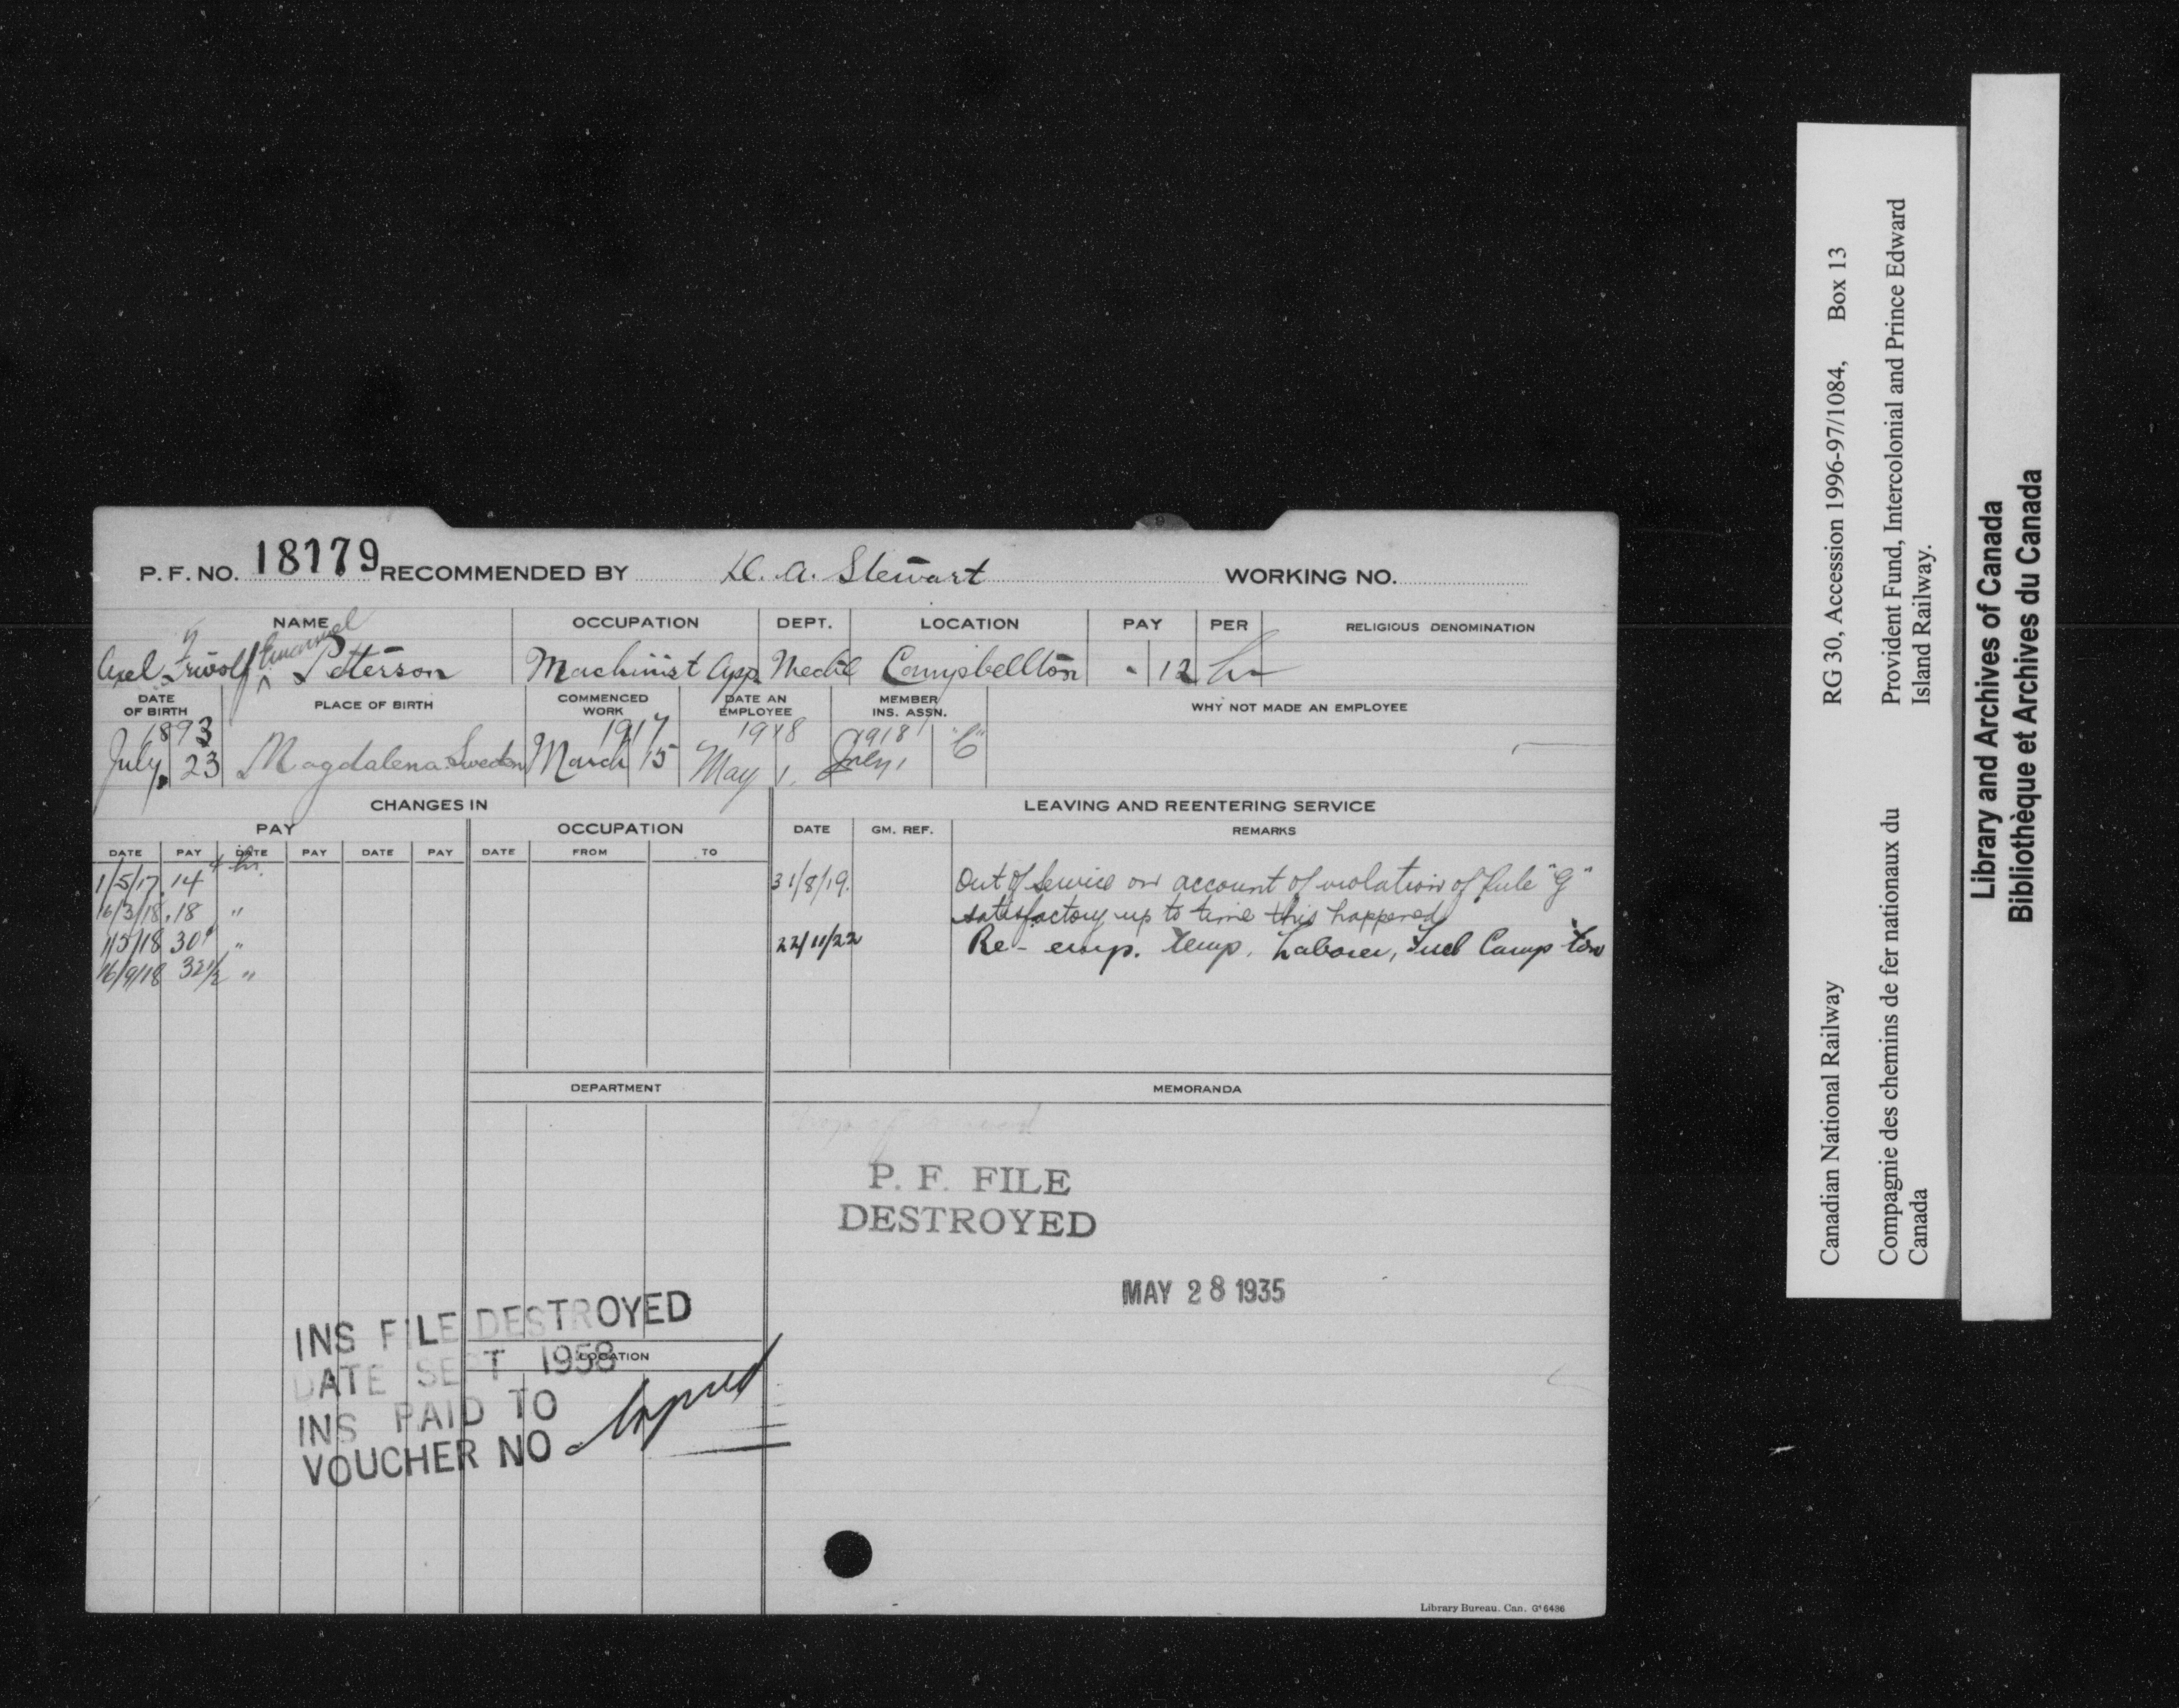 P. F. NO. 18179 RECOMMENDED BY D. A. Stewart WORKING NO.
NAME OCCUPATION DEPT. LOCATION PAY PER RELIGIOUS DENOMINATION
Emanuel
Axel Peterson Machinist App. Mech'l Campbellton . 12 hr
DATE OF BIRTH PLACE OF BIRTH COMMENCED WORK DATE AN EMPLOYEE MEMBER INS. ASSN. WHY NOT MADE AN EMPLOYEE
1893 1917 1918 1918 "C"
July 23 Magdalena Sweden March 15 May 1. July 1
CHANGES IN LEAVING AND REENTERING SERVICE
PAY OCCUPATION DATE GM. REF. REMARKS
DATE PAY DATE PAY DATE PAY DATE FROM TO
1/5/17 .14 hr. 31/8/19. Out of Service on account of violation of Rule "G"
16/3/18 .18 " satisfactory up to time this happened
1/5/18 30¢ " 22/11/22 Re-emp. temp. Laborer, Fuel Camp'ton
16/9/18 32½ "
DEPARTMENT MEMORANDA
P. F. FILE
DESTROYED
MAY 28 1935
INS FILE DESTROYED
DATE SEPT 1958
LOCATION
INS PAID TO
VOUCHER NO Lapsed
Library Bureau. Can. G¹6486
Canadian National Railway RG 30, Accession 1996-97/1084, Box 13
Compagnie des chemins de fer nationaux du Canada
Provident Fund, Intercolonial and Prince Edward Island Railway.
Library and Archives of Canada
Bibliothèque et Archives du Canada